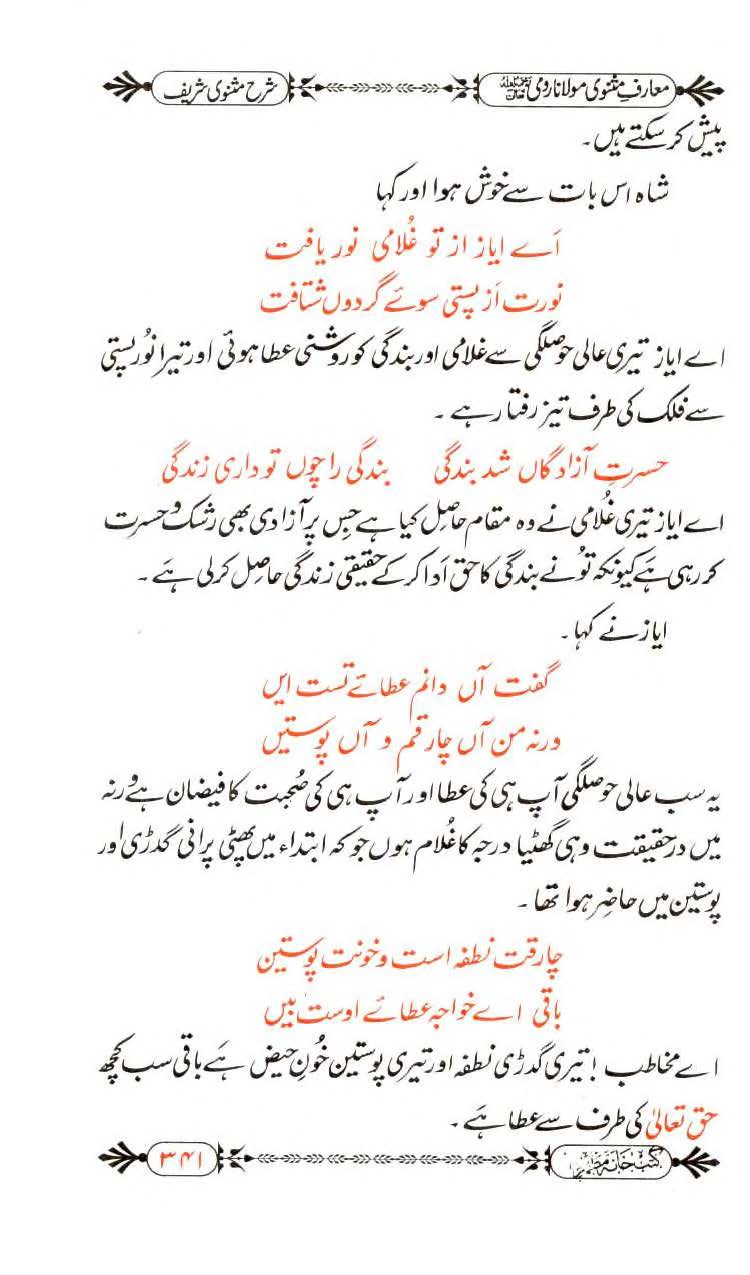 معارفِ مثنوی مولانا رومی رحمۃ اللہ تعالیٰ علیہ شرح مثنوی شریف
پیش کر سکتے ہیں۔
شاہ اس بات سے خوش ہوا اور کہا
اَے ایاز از تو غُلامی نور یافت
نورت اَز پستی سوئے گردوں شتافت
اے ایاز تیری عالی حوصلگی سے غلامی اور بندگی کو روشنی عطا ہوئی اور تیرا نُور پستی
سے فلک کی طرف تیز رفتار ہے ۔
حسرتِ آزادگاں شد بندگی بندگی را چوں تو داری زندگی
اے ایاز تیری غُلامی نے وہ مقام حاصِل کیا ہے جس پر آزادی بھی رشک و حسرت
کر رہی ہَے کیونکہ تُو نے بندگی کا حق اَدا کر کے حقیقی زندگی حاصِل کر لی ہَے ۔
ایاز نے کہا ۔
گفت آں دانم عطائے تست ایں
ورنہ من آں چارقم و آں پوستیں
یہ سب عالی حوصلگی آپ ہی کی عطا اور آپ ہی کی صُحبت کا فیضان ہے ورنہ
میں درحقیقت وہی گھٹیا درجہ کا غُلام ہوں جو کہ ابتداء میں پھٹی پرانی گدڑی اور
پوستین میں حاضِر ہوا تھا ۔
چارقت نطفہ است و خونت پوستین
باقی اے خواجہ عطائے اوست بیں
اے مخاطب ! تیری گدڑی نطفہ اور تیری پوستین خُونِ حیض ہَے باقی سب کچھ
حق تعالیٰ کی طرف سے عطا ہَے ۔
کتب خانہ مظہری ۳۴۱